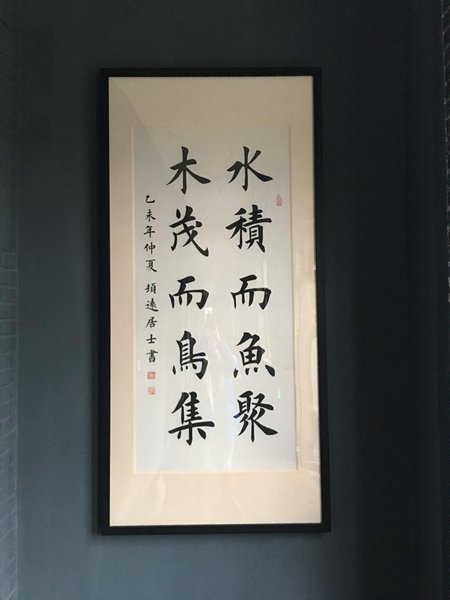 水積而魚聚
木茂而鳥集
乙未年仲夏 須遠居士書